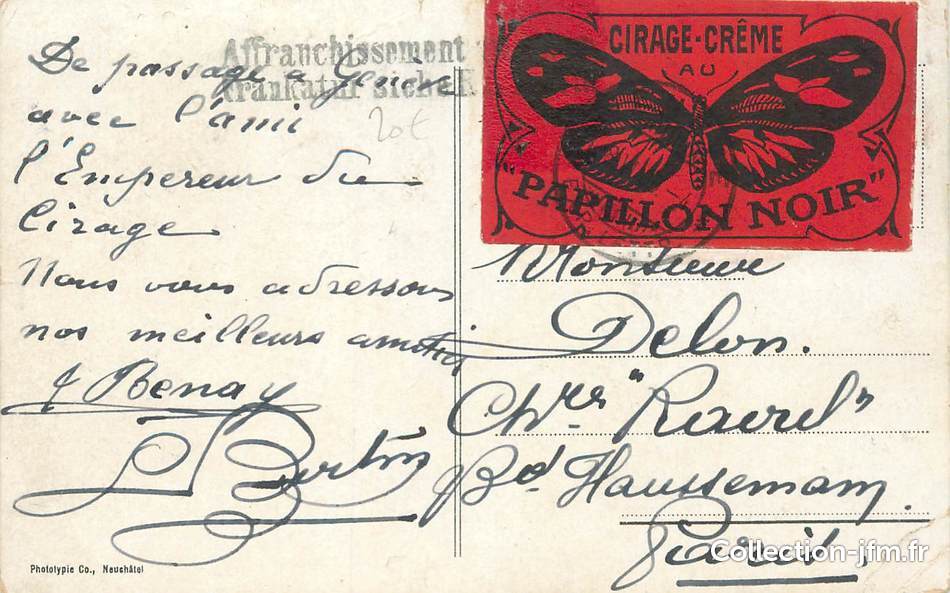 De passage a Genève
avec l'ami
l'Empereur du
Cirage
Nous vous adressons
nos meilleurs amitiés
Benay
Berton
Phototypie Co., Neuchâtel
Affranchissement
Frankatur
20€
CIRAGE-CRÊME
AU
"PAPILLON NOIR"
Monsieur
Delon.
Ch^rs "Raoul"
Bd. Haussemam.
Paris,
Collection-jfm.fr